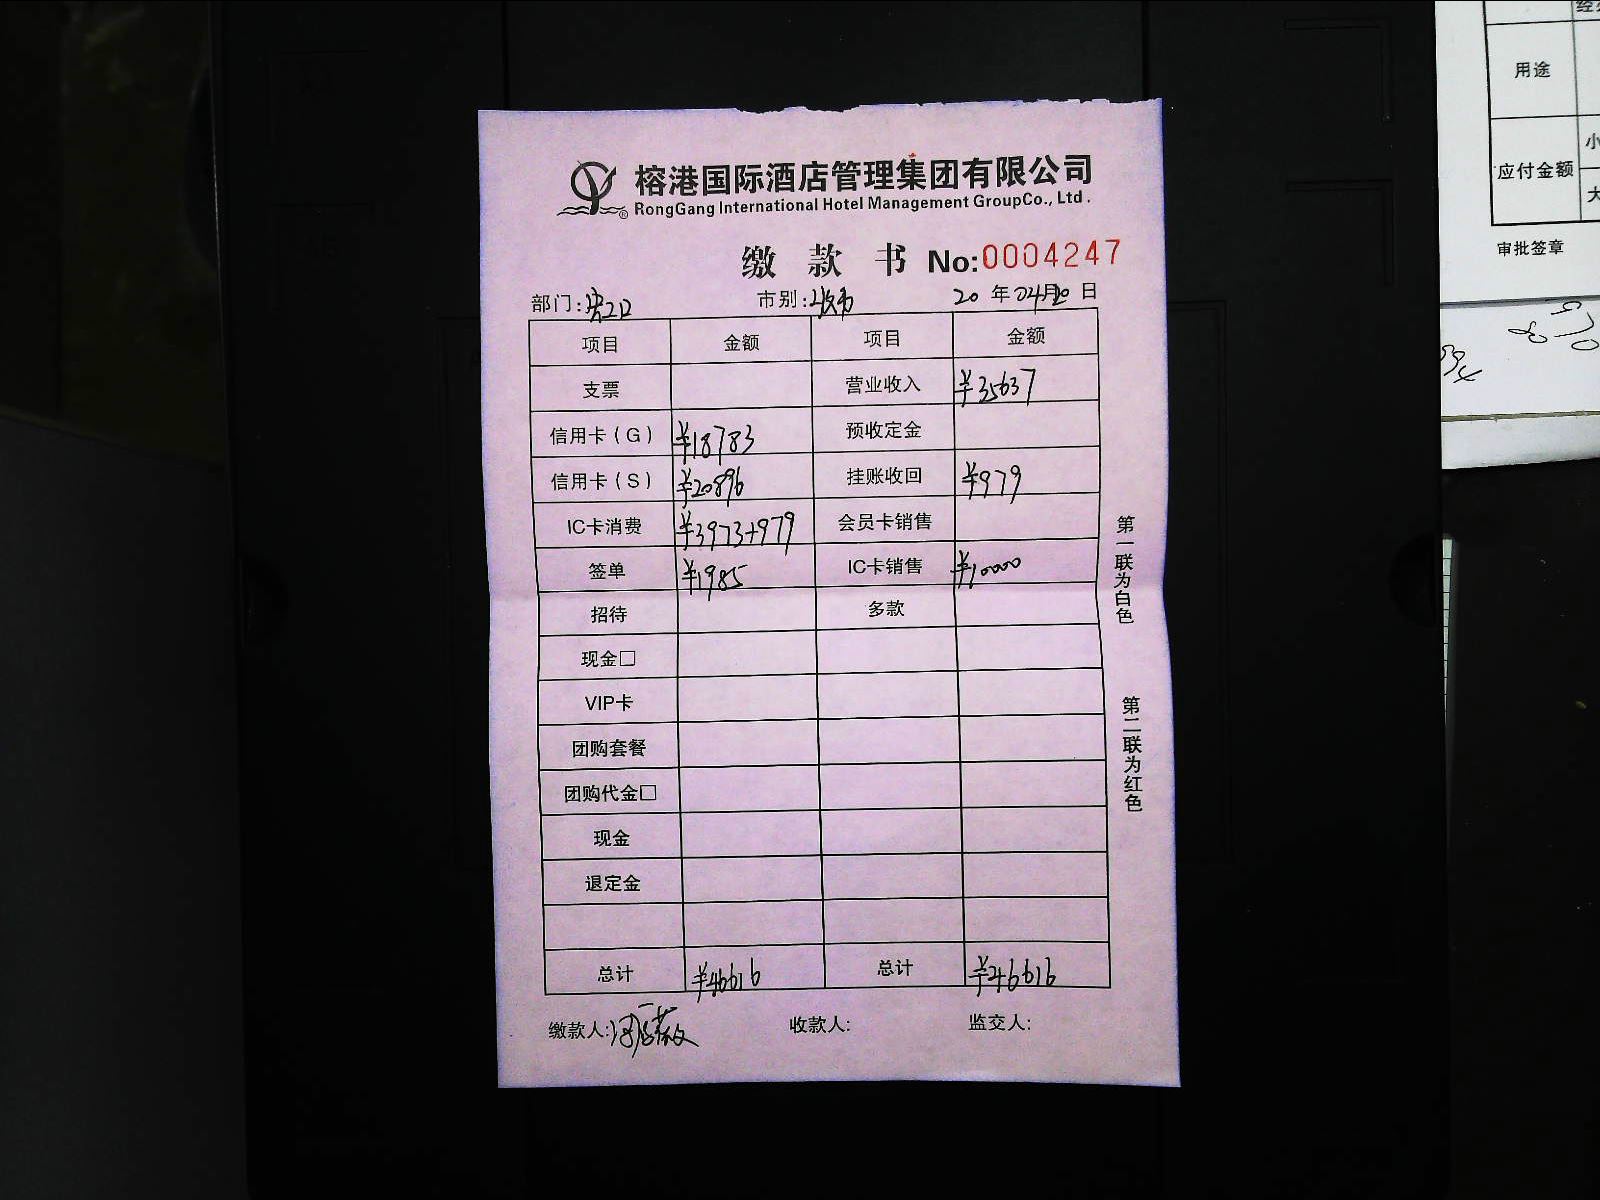 榕港国际酒店管理集团有限公司
RongGang International Hotel Management GroupCo., Ltd.
缴款书 No:0004247
部门: 市别: 20年04月20日
项目 金额 项目 金额
支票 营业收入 ¥35637
信用卡(G) ¥18783 预收定金
信用卡(S) ¥20896 挂账收回 ¥979
IC卡消费 ¥3973+979 会员卡销售
签单 ¥1985 IC卡销售 ¥10000
招待 多款
现金□
VIP卡
团购套餐
团购代金□
现金
退定金
总计 ¥46616 总计 ¥46616
缴款人: 收款人: 监交人:
第一联为白色
第二联为红色
用途
应付金额
小
大
审批签章